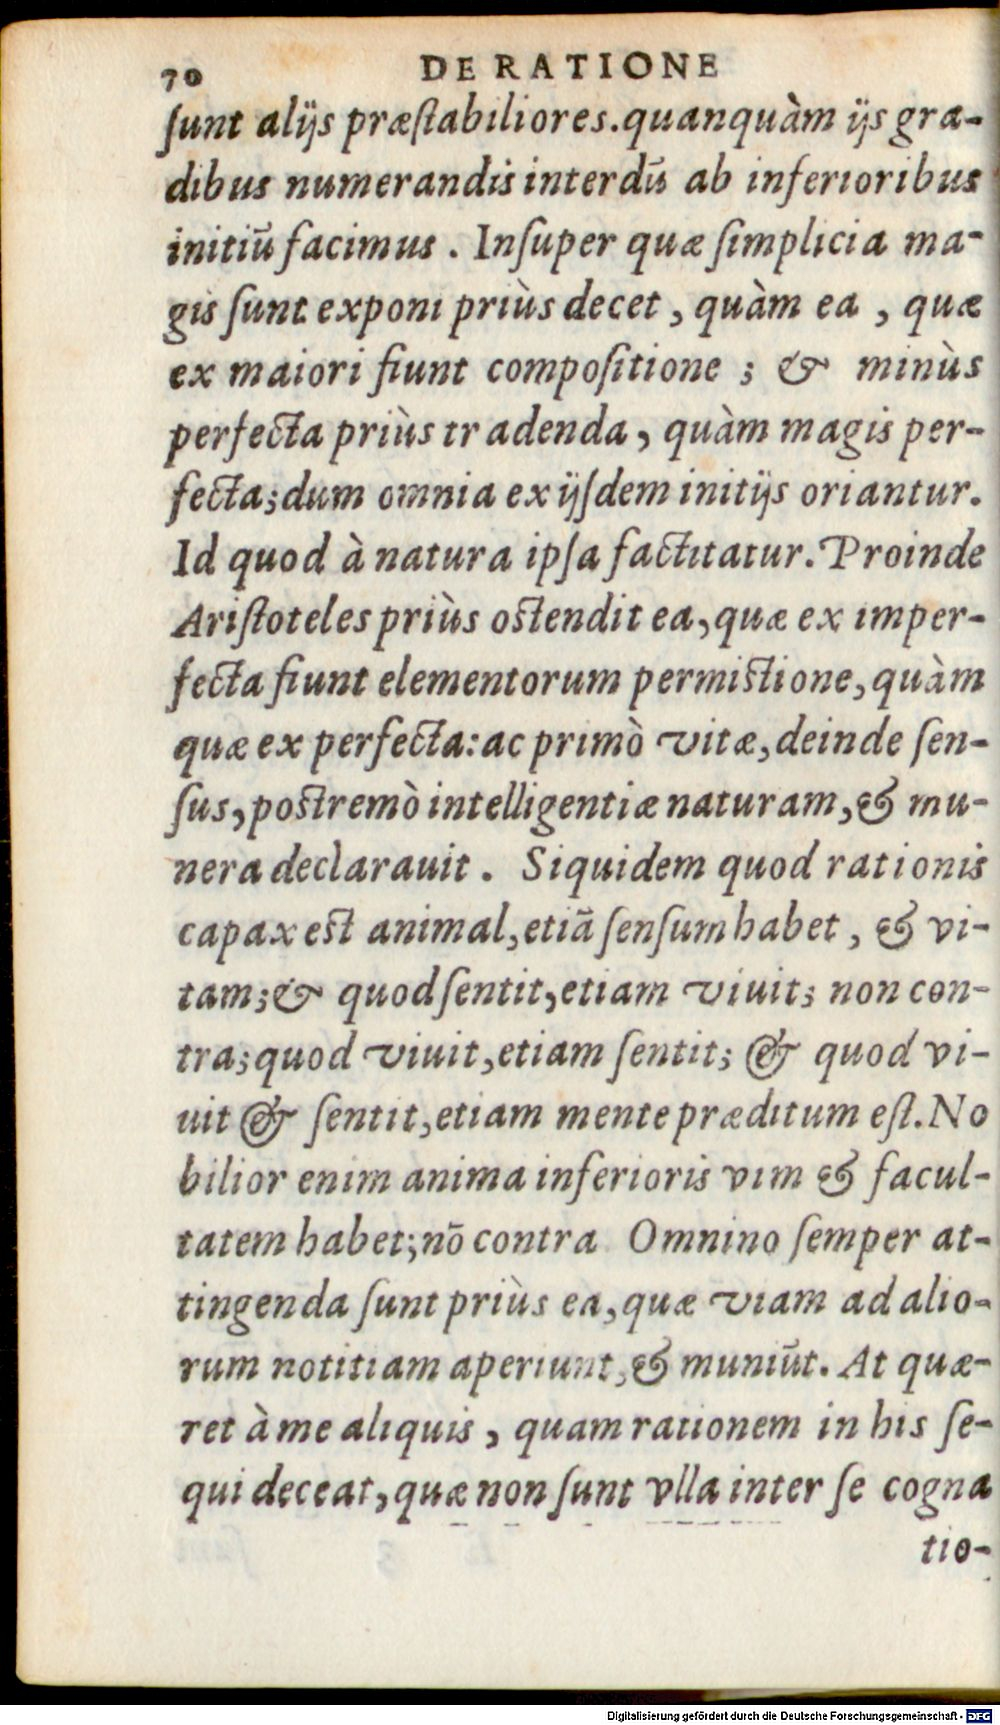 70 DE RATIONE
ſunt alijs præſtabiliores.quanquàm ijs gra-
dibus numerandis interdū ab inferioribus
initiū facimus . Inſuper quæ ſimplicia ma-
gis ſunt exponi priùs decet , quàm ea , quæ
ex maiori fiunt compoſitione ; & minùs
perfecta priùs tradenda , quàm magis per-
fecta;dum omnia ex ijſdem initijs oriantur.
Id quod à natura ipſa factitatur. Proinde
Ariſtoteles priùs oſtendit ea,quæ ex imper-
fecta fiunt elementorum permiſtione,quàm
quæ ex perfecta:ac primò vitæ,deinde ſen-
ſus,poſtremò intelligentiæ naturam,& mu-
nera declarauit . Siquidem quod rationis
capax eſt animal,etiā ſenſum habet , & vi-
tam;& quod ſentit,etiam viuit; non con-
tra;quod viuit,etiam ſentit; & quod vi-
uit & ſentit,etiam mente præditum eſt.No
bilior enim anima inferioris vim & facul-
tatem habet;nō contra Omnino ſemper at-
tingenda ſunt priùs ea,quæ viam ad alio-
rum notitiam aperiunt,& muniūt. At quæ-
ret à me aliquis , quam rationem in his ſe-
qui deceat,quæ non ſunt vlla inter ſe cogna
tio-
Digitalisierung gefördert durch die Deutsche Forschungsgemeinschaft - DFG